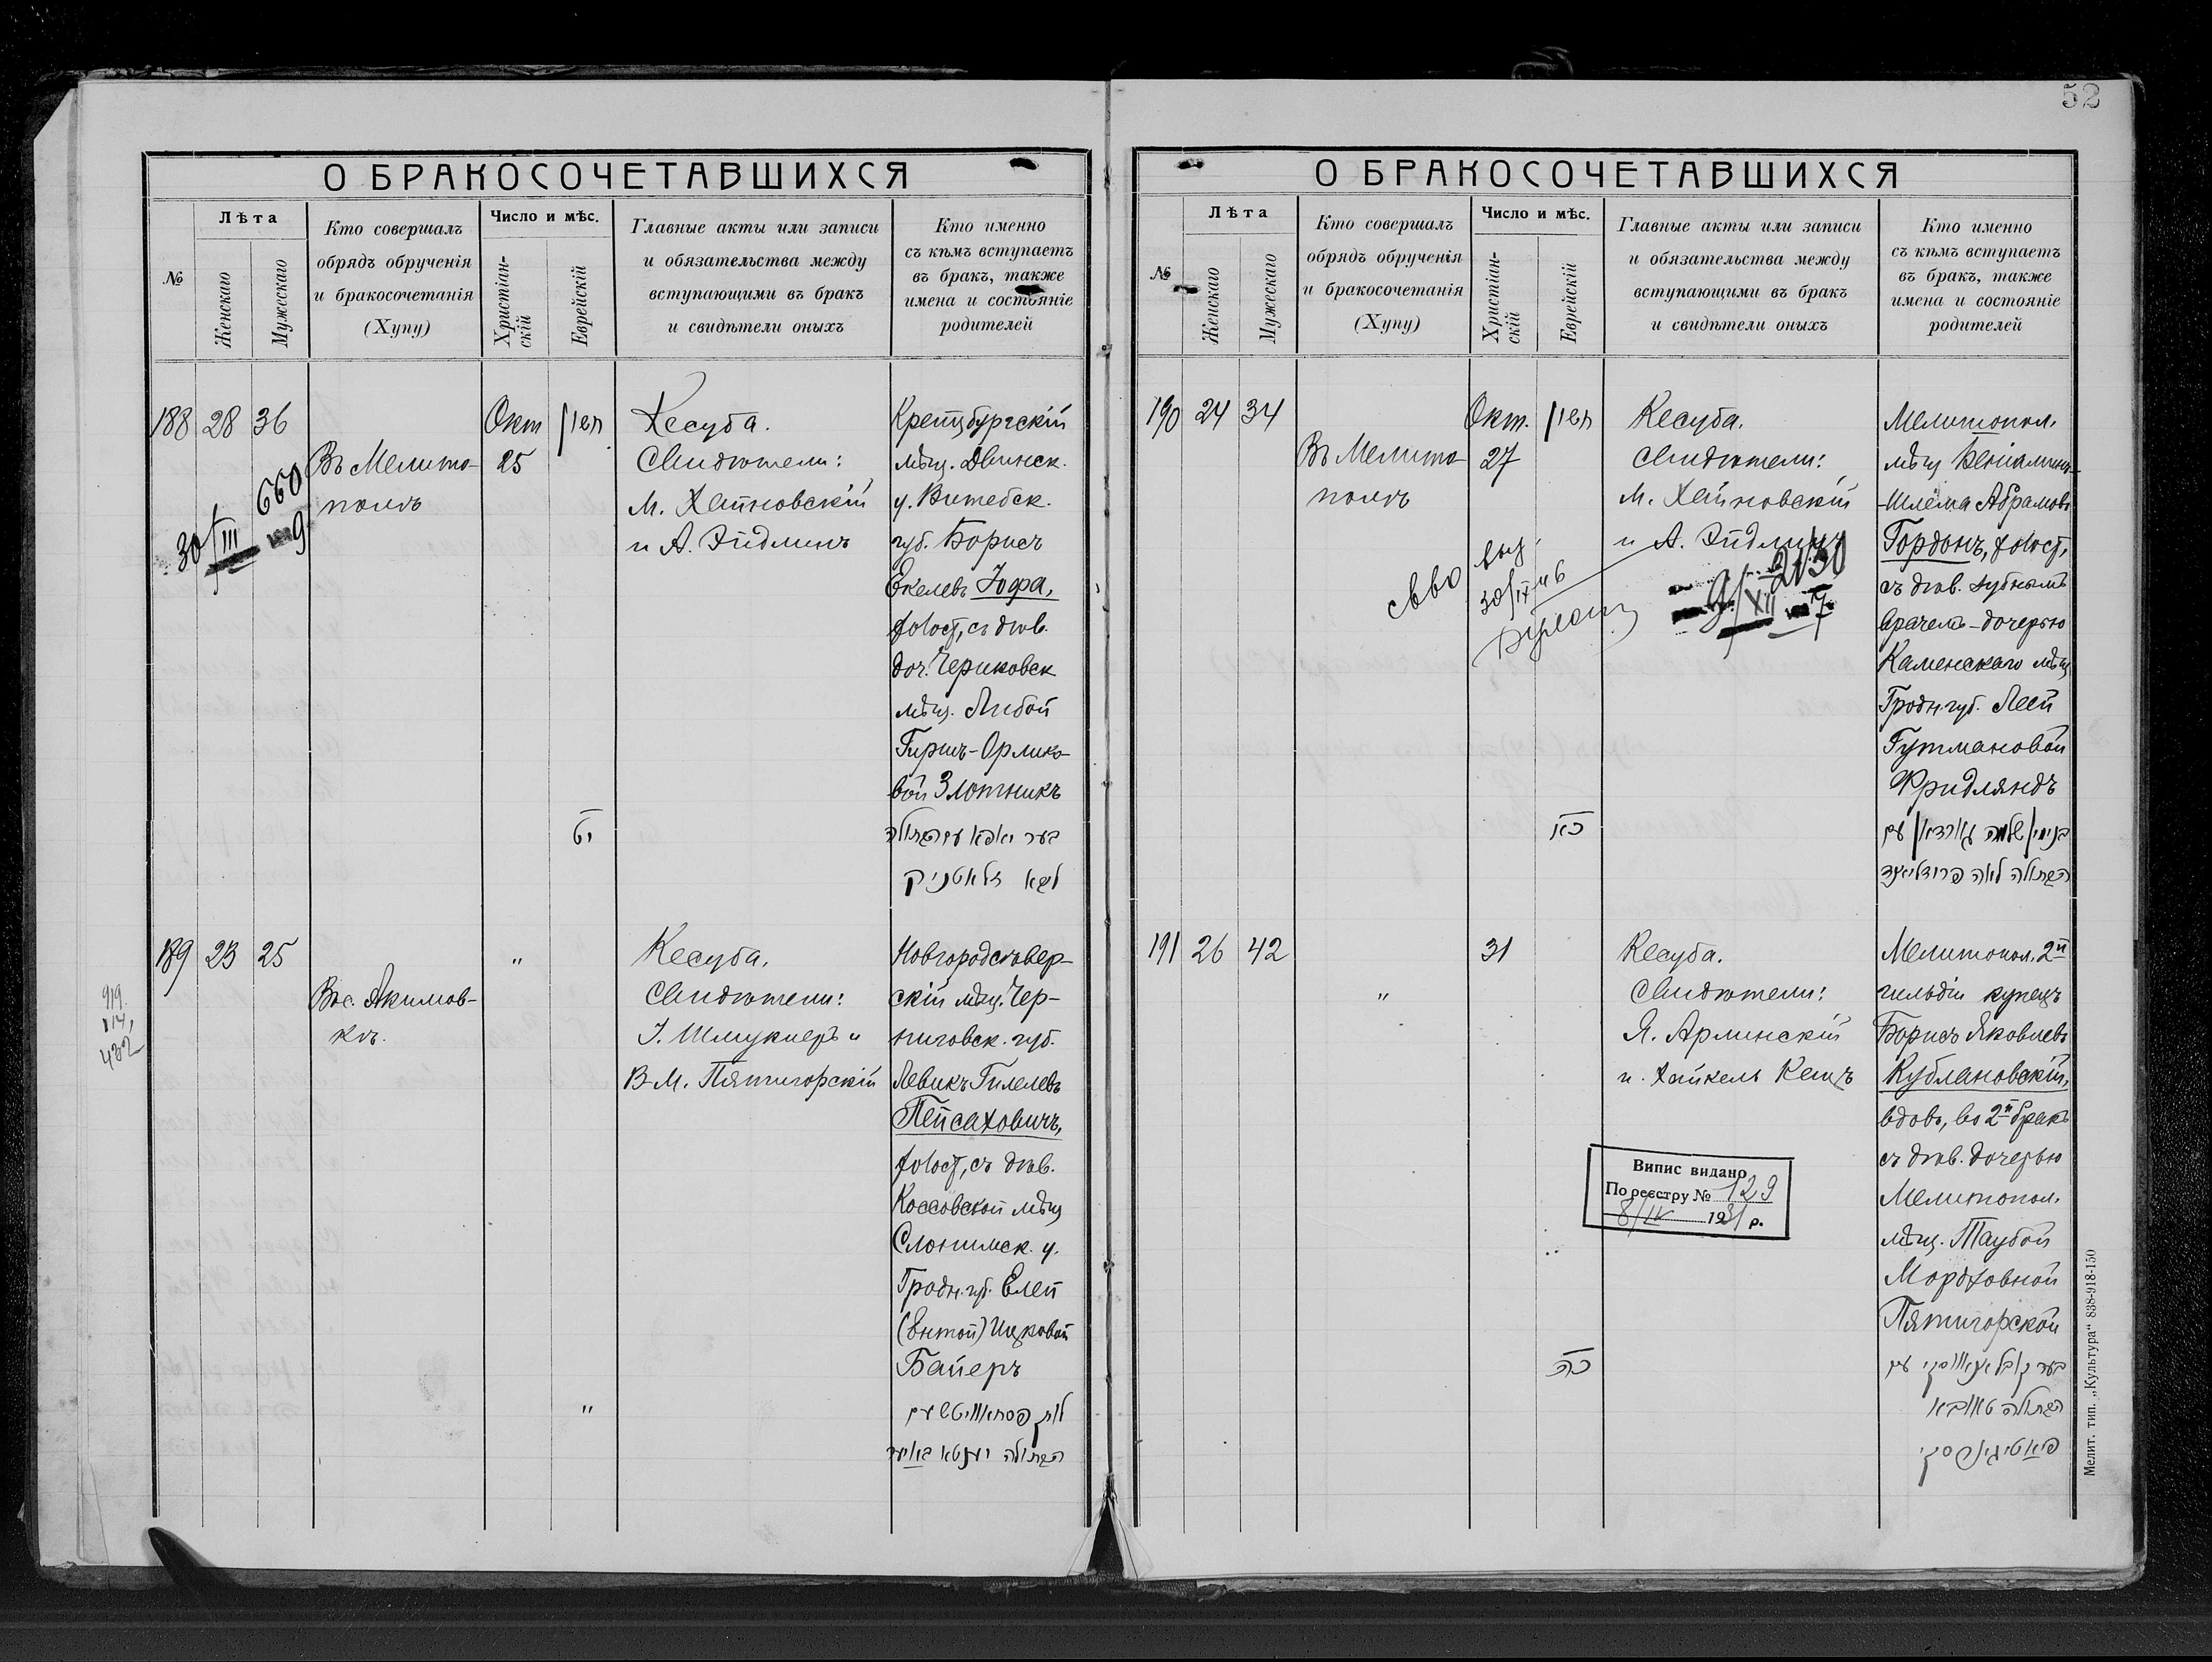 52
О БРАКОСОЧЕТАВШИХСЯ
№
Лѣта
Женскаго
Мужскаго
Кто совершалъ
обрядъ обрученія
и бракосочетанія
(Хупу)
Число и мѣс.
Христіан-
скій
Еврейскій
Главные акты или записи
и обязательства между
вступающими въ бракъ
и свидѣтели оныхъ
Кто именно
съ кѣмъ вступаетъ
въ бракъ, также
имена и состояніе
родителей
188 28 36
Въ Мелито-
полѣ
Окт
25
חשן
יט
660
30/III 9
Кесуба.
Свидѣтели:
М. Хайновскій
и А. Эйдлинъ
Крейцбургскій
мѣщ. Двинск.
у. Витебск.
губ. Борисъ
Екелевъ Іофа,
холост, съ дѣв.
доч. Чериковск
мѣщ. Либой
Гирш-Орлико-
вой Злотникъ
בער יאפא עם הבתולה
ליבא זלאטניק
189 23 25
Въ с. Акимов-
кѣ.
"
"
919
114,
432
Кесуба.
Свидѣтели:
І. Шмуклеръ и
В-М. Пятигорскій
Новгородсѣвер-
скій мѣщ. Чер-
ниговск. губ.
Левикъ Гилелевъ
Пейсаховичъ,
холост, съ дѣв.
Коссовской мѣщ
Слонимск. у.
Гродн. губ. Елей
(Ентой) Ицковой
Байеръ
הבתולה יענטא באיער
О БРАКОСОЧЕТАВШИХСЯ
№
Лѣта
Женскаго
Мужескаго
Кто совершалъ
обрядъ обрученія
и бракосочетанія
(Хупу)
Число и мѣс.
Христіан-
скій
Еврейскій
Главные акты или записи
и обязательства между
вступающими въ бракъ
и свидѣтели оныхъ
Кто именно
съ кѣмъ вступаетъ
въ бракъ, также
имена и состояніе
родителей
190 24 34
Въ Мелито
полѣ
Окт.
27
חשן
כא
Кесуба.
Свидѣтели:
М. Хайновскій
и А. Эйдлинъ
30/IX 46
2130
9/XII 7
Мелитопол.
мѣщ Беніаминъ-
-Шлема Абрамовъ
Гордонъ, холост,
съ дѣв. зубнымъ
врачемъ-дочерью
Каменскаго мѣщ
Гродн. губ. Леей
Гутмановой
Фридляндъ
בנימין שלמה גארדאן עם
הבתולה לאה פרידליאנד
191 26 42
"
31
כה
Кесуба.
Свидѣтели:
Я. Арлинскій
и Хайкель Кацъ
Випис видано
По реєстру № 129
8/IV 1931 р.
Мелитопол. 2й
гильдіи купецъ
Борисъ Яковлевъ
Кублановскій,
вдовъ, во 2й бракъ
съ дѣв. дочерью
Мелитопол.
мѣщ. Таубой
Мордховной
Пятигорской
בער קובליאנאווסקי עם
הבתולה טאובא
פיאטיגארסקי
Мелит. тип. „Культура" 838-918-150